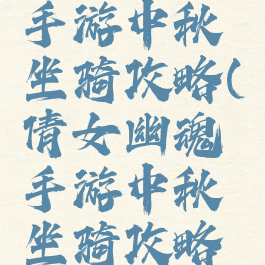 手游中秋
坐骑攻略(
倩女幽魂
手游中秋
坐骑攻略